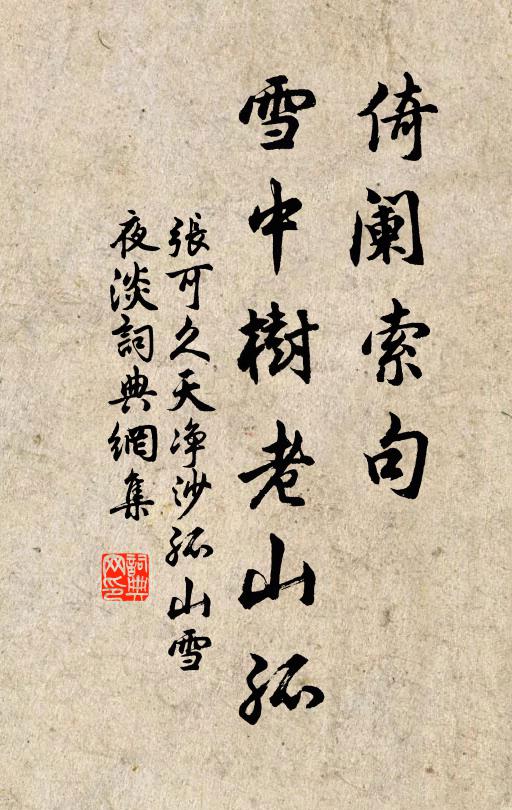 倚阑索句
雪中樹老山孤
張可久天净沙孤山雪
夜淡詞典網集
詞典
网印